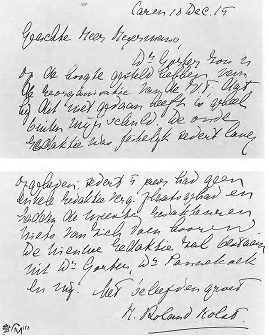 Laren 10 Dec. 15
Geachte Heer Heyermans,
Dr. Gorter zou u
op de hoogte gesteld hebben van
de reorganisatie van de N.T. Dat
hij dit niet gedaan heeft is geheel
buiten mijn schuld. De oude
redaktie was feitelijk sedert lang
opgeheven, sedert 5 jaar had geen
enkele redaktie verg. plaatsgehad en
hadden de meeste redakteuren
niets van zich doen hooren.
De nieuwe redaktie zal bestaan
uit Dr. Gorter, Dr. Pannekoek
en mij. Met beleefden groet
H. Roland Holst